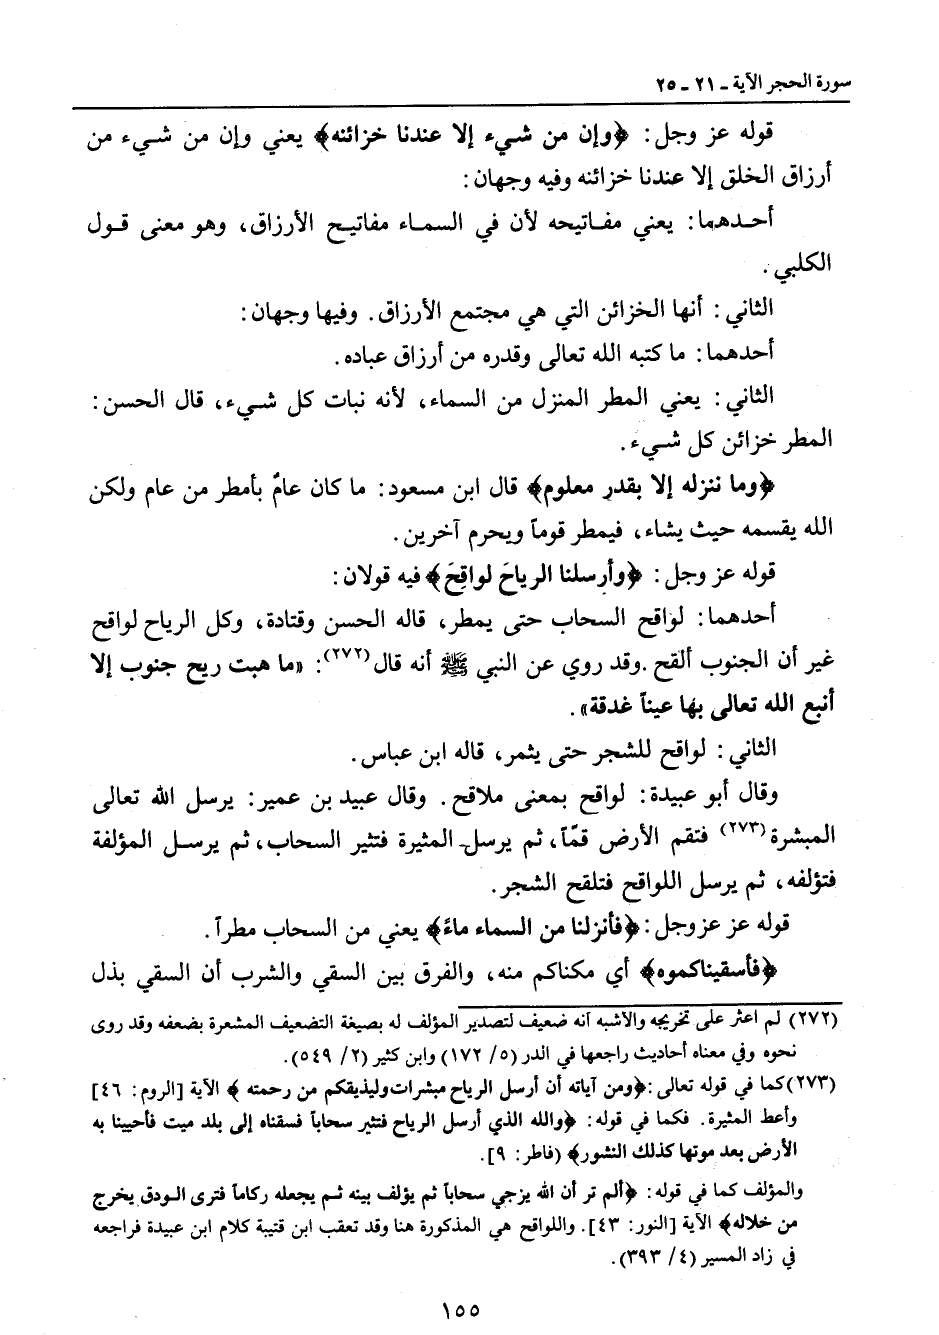 سورة الحجر الآية ـ ٢١ ـ ٢٥
قوله عز وجل: ﴿وإن من شيء إلا عندنا خزائنه﴾ يعني وإن من شيء من
أرزاق الخلق إلا عندنا خزائنه وفيه وجهان:
أحدهما: يعني مفاتيحه لأن في السماء مفاتيح الأرزاق، وهو معنى قول
الكلبي.
الثاني: أنها الخزائن التي هي مجتمع الأرزاق. وفيها وجهان:
أحدهما: ما كتبه الله تعالى وقدره من أرزاق عباده.
الثاني: يعني المطر المنزل من السماء، لأنه نبات كل شيء، قال الحسن:
المطر خزائن كل شيء.
﴿وما ننزله إلا بقدرٍ معلوم﴾ قال ابن مسعود: ما كان عامٌ بأمطر من عام ولكن
الله يقسمه حيث يشاء، فيمطر قوماً ويحرم آخرين.
قوله عز وجل: ﴿وأرسلنا الرياحَ لواقِحَ﴾ فيه قولان:
أحدهما: لواقح السحاب حتى يمطر، قاله الحسن وقتادة، وكل الرياح لواقح
غير أن الجنوب ألقح .وقد روي عن النبي ﷺ أنه قال(٢٧٢): «ما هبت ريح جنوب إلا
أنبع الله تعالى بها عيناً غدقة».
الثاني: لواقح للشجر حتى يثمر، قاله ابن عباس.
وقال أبو عبيدة: لواقح بمعنى ملاقح. وقال عبيد بن عمير: يرسل الله تعالى
المبشرة(٢٧٣) فتقم الأرض قمّاً، ثم يرسل المثيرة فتثير السحاب، ثم يرسل المؤلفة
فتؤلفه، ثم يرسل اللواقح فتلقح الشجر.
قوله عز عز وجل: ﴿فأنزلنا من السماء ماءً﴾ يعني من السحاب مطراً.
﴿فأسقيناكموه﴾ أي مكناكم منه، والفرق بين السقي والشرب أن السقي بذل
(٢٧٢) لم اعثر على تخريجه والأشبه أنه ضعيف لتصدير المؤلف له بصيغة التضعيف المشعرة بضعفه وقد روى
نحوه وفي معناه أحاديث راجعها في الدر (٥/ ١٧٢) وابن كثير (٢/ ٥٤٩).
(٢٧٣)كما في قوله تعالى:﴿ومن آياته أن أرسل الرياح مبشرات وليذيقكم من رحمته﴾ الآية [الروم: ٤٦]
وأعط المثيرة. فكما في قوله: ﴿والله الذي أرسل الرياح فتثير سحاباً فسقناه إلى بلد ميت فأحيينا به
الأرض بعد موتها كذلك النشور﴾ (فاطر: ٩].
والمؤلف كما في قوله: ﴿ألم تر أن الله يزجي سحاباً ثم يؤلف بينه ثم يجعله ركاماً فترى الودق يخرج
من خلاله﴾ الآية [النور: ٤٣]. واللواقح هي المذكورة هنا وقد تعقب ابن قتيبة كلام ابن عبيدة فراجعه
في زاد المسير (٤/ ٣٩٣).
١٥٥